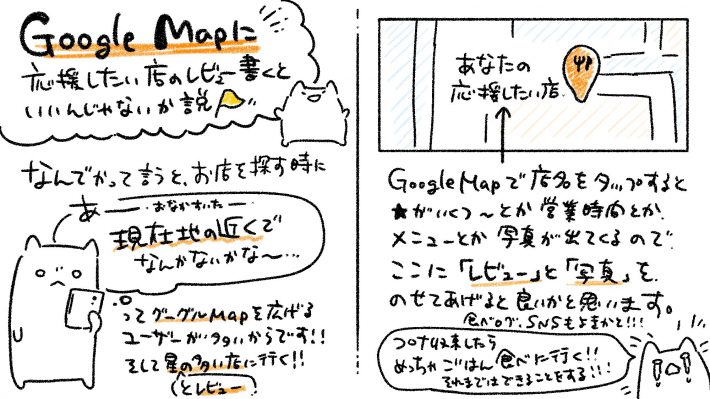 Google Mapに
応援したい店のレビュー書くと
いいんじゃないか説
なんでかって言うと、お店を探す時に
あー
おなかすいた
現在地の近くで
なんかないかな〜…
ってグーグルMapを広げる
ユーザーが多いからです!!
そして星の多い店に行く!!
(とレビュー)
あなたの
応援したい店
Google Mapで店名をタップすると
★がいくつ〜とか営業時間とか
メニューとか写真が出てくるので
ここに「レビュー」と「写真」を
のせてあげると良いかと思います。
食べログ、SNSもよきかと!!!
コロナ収束したら
めっちゃごはん食べに行く!!
それまではできることをする!!!